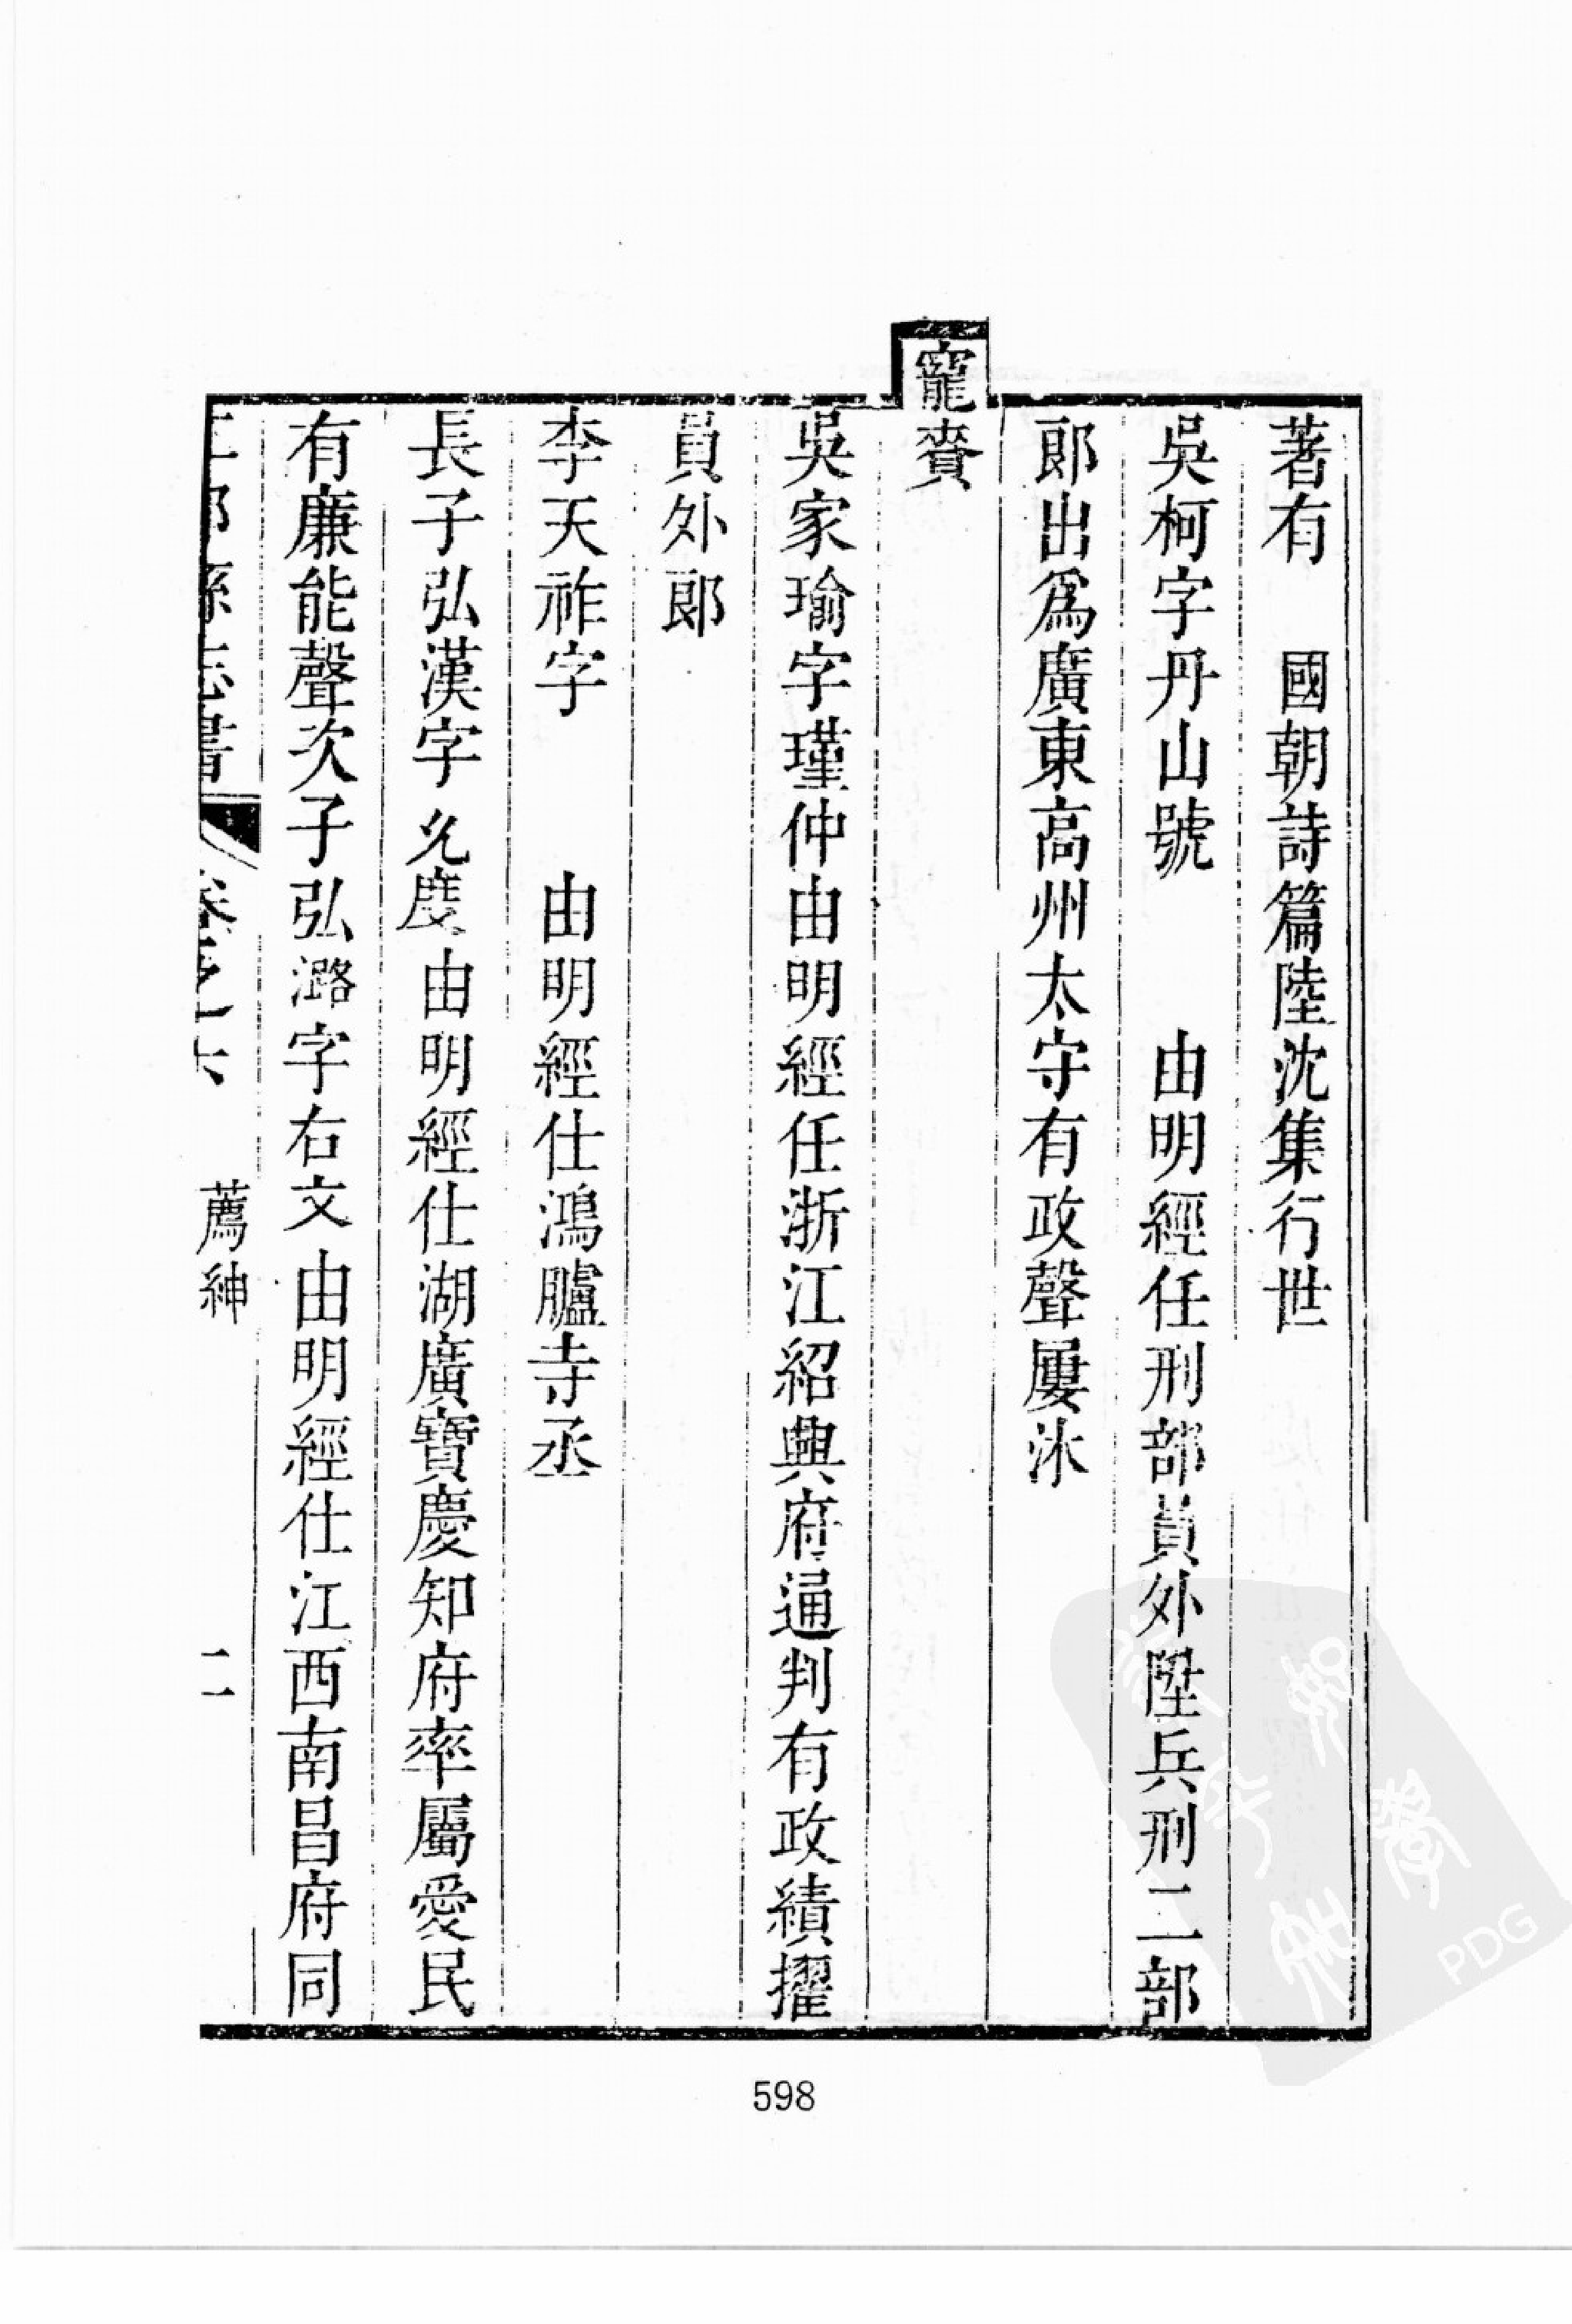 著有　國朝詩篇陸沈集行世
吳柯字丹山號　　由明經任刑部員外陞兵刑二部
郞出爲廣東高州太守有政聲屢沐
寵賚
吳家瑜字瑾仲由明經任浙江紹興府通判有政績擢
員外郞
李天祚字　　由明經仕鴻臚寺丞
長子弘漢字允度由明經仕湖廣寶慶知府率屬愛民
有廉能聲次子弘潞字右文由明經仕江西南昌府同
江都縣志書　卷之六　薦紳　二
598
PDG